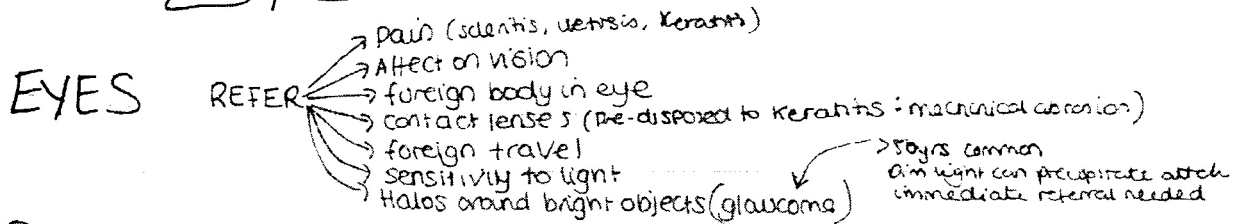 EYES REFER
Pain (scleritis, uetisis, Keratitis)
Affect on vision
foreign body in eye
contact lenses (pre-disposed to Keratitis : mechinical
foreign travel
sensitivity to light
Halos around bright objects (glaucoma)
>50yrs common
Dim light can precipitate attack
immediate referral needed